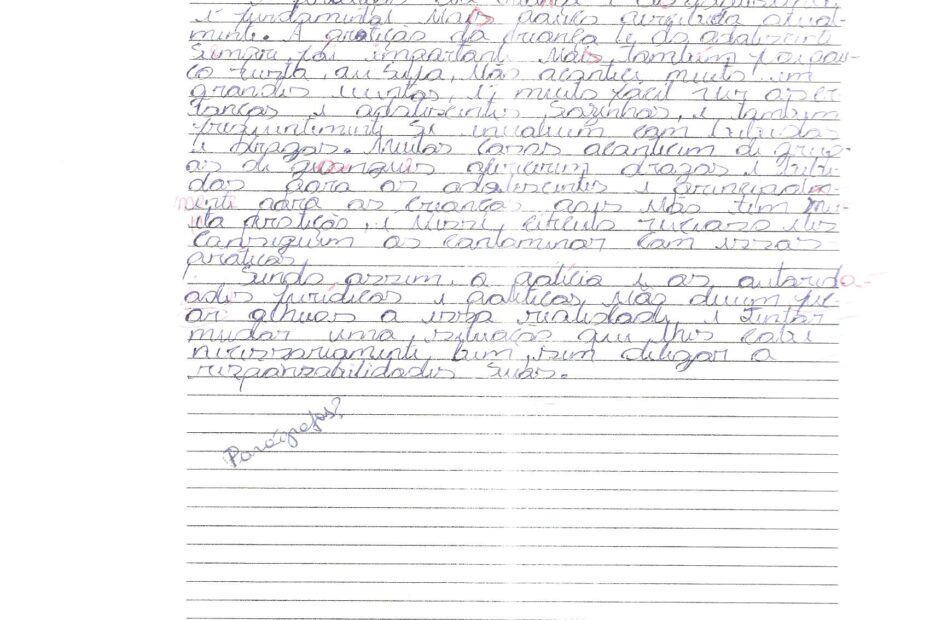 é fundamental mais pouco atual-
mente. A proteção da criança e do adolescente
sempre foi importante mais, também pou-
co vista, ou seja, não acontece muito em
grandes centros, é muito fácil ver
crianças e adolescentes sozinhos, e também
frequentemente se com bebidas
e drogas. Muitos casos acontecem de gru-
os de oferecerem drogas e bebi-
das para os adolescentes e principalm-
mente para as crianças pois não tem mu-
ita proteção, e nesse, círculo vicioso eles
conseguem os contaminar com essas
práticas.
Sendo assim, a polícia e as autorida-
ades jurídicas e políticas não devem
alheias a essa realidade, e tentar
mudar uma situação que lhes cabe
necessariamente, bem, sem a
responsabilidades suas.
Parágrafos?